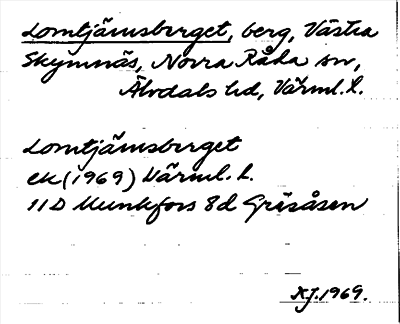 Lomtjärnsberget, berg, Västra
Skymnäs, Norra Råda sn,
Älvdals hd, Värml. l.
Lomtjärnsberget
ek (1969) Värml. l.
11D Munkfors 8d Gräsåsen
KJ. 1969.